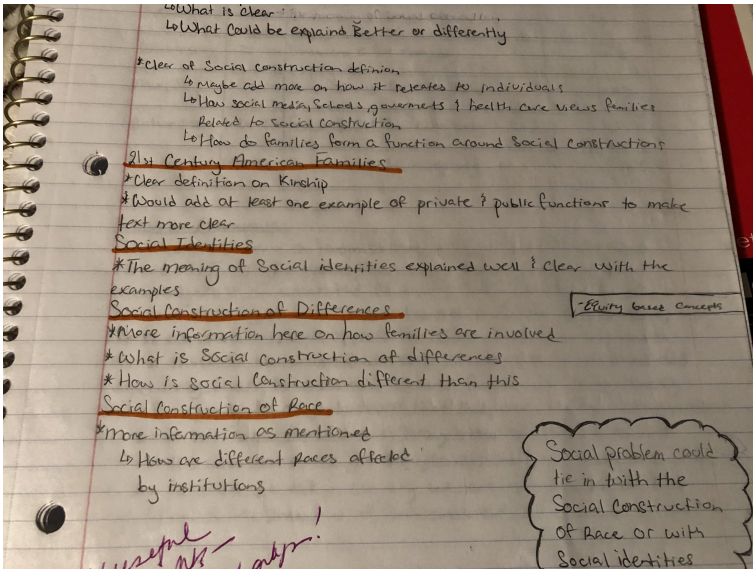 ↳What is clear:
↳What Could be explaind Better or differently
*Clear of Social Construction definion
↳ Maybe add more on how it releates to Individuals
↳How social media, Schools, goverments & health care views families
Related to social construction
↳How do families form a function around Social Constructions
21st Century American Families
*Clear definition on Kinship
*Would add at least one example of private & public functions to make
text more clear
Social Identities
*The meaning of Social identities explained well & clear with the
examples
Social Construction of Differences
-Equity based concepts
*More information here on how families are involved
*What is Social construction of differences
*How is Social Construction different than this
Social Construction of Race
*more information as mentioned
↳ How are different Races affected
by institutions
Social problem could
tie in with the
Social Construction
of Race or with
Social identities
useful